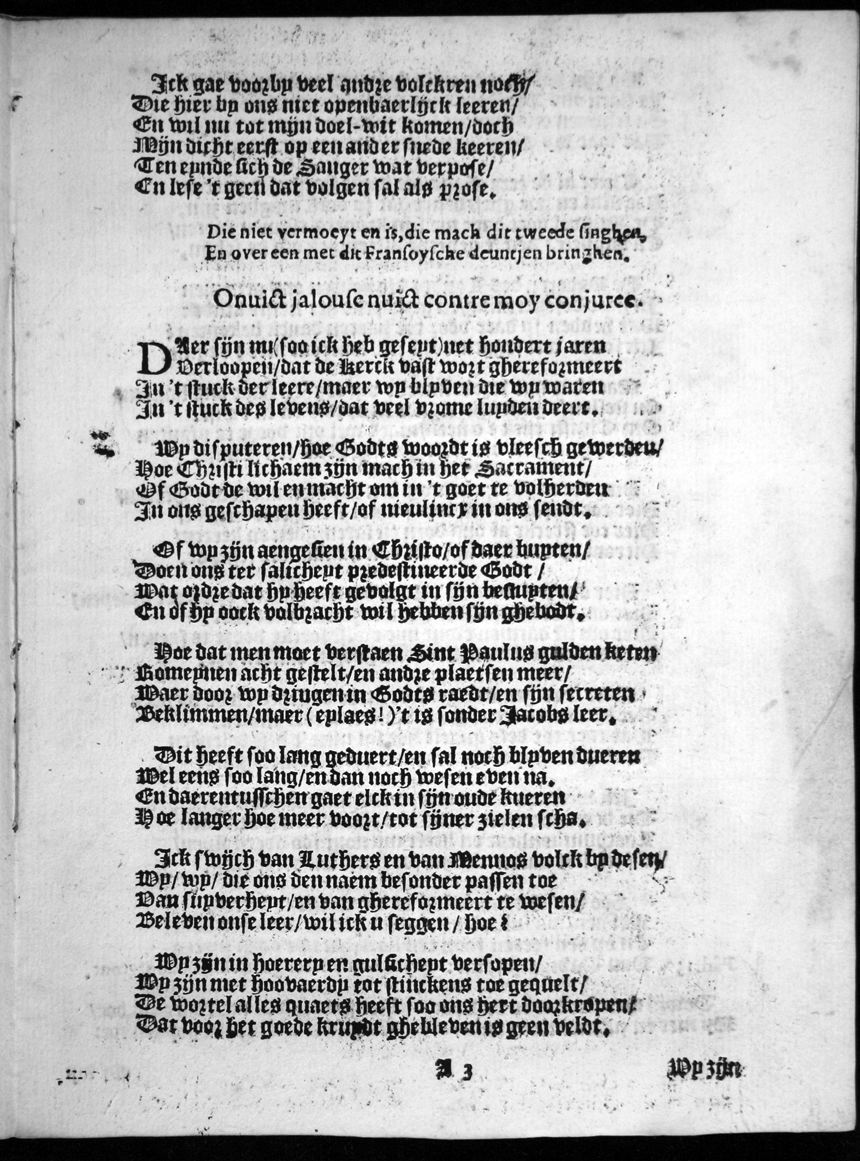 Ick gae voorby veel andre volckren noch/
Die hier by ons niet openbaerlijck leeren/
En wil nu tot mijn doel-wit komen/doch
Mijn dicht eerst op een ander snede keeren/
Ten eynde sich de Sanger wat verpose/
En lese 't geen dat volgen sal als prose.
Die niet vermoeyt en is, die mach dit tweede singhen,
En over een met dit Fransoysche deuntjen bringhen.
Onuict jalouse nuict contre moy conjuree.
DAer sijn nu (soo ick heb geseyt) net hondert jaren
Verloopen/dat de Kerck vast wort ghereformeert
In 't stuck der leere/maer wy blyven die wy waren
In 't stuck des levens/dat veel vrome luyden deert.
Wy disputeren/hoe Godts woordt is vleesch gewerden/
Hoe Christi lichaem zijn mach in het Sacrament/
Of Godt de wil en macht om in 't goet te volherden
In ons geschapen heeft/of nieulincx in ons sendt.
Of wy zijn aengesien in Christo/of daer buyten/
Doen ons ter salicheyt predestineerde Godt /
Wat ordre dat hy heeft gevolgt in sijn besluyten/
En of hy oock volbracht wil hebben sijn ghebodt.
Hoe dat men moet verstaen Sint Paulus gulden keten
Romeynen acht gestelt/en andre plaetsen meer/
Waer door wy dringen in Godts raedt/en sijn secreten
Beklimmen/maer (eylaes!) 't is sonder Jacobs leer.
Dit heeft soo lang geduert/en sal noch blyven dueren
Wel eens soo lang/en dan noch wesen even na.
En daerentusschen gaet elck in sijn oude kueren
Hoe langer hoe meer voort/tot sijner zielen scha.
Ick swijch van Luthers en van Mennos volck by desen/
Wy/ wy/ die ons den naem besonder passen toe
Van suyverheyt/en van ghereformeert te wesen/
Beleven onse leer/wil ick u seggen / hoe?
Wy zijn in hoerery en gulsicheyt versopen/
Wy zijn met hoovaerdy tot stinckens toe gequelt/
De wortel alles quaets heeft soo ons hert doorkropen/
Dat voor het goede kruydt ghebleven is geen veldt.
A 3
Wy zijn